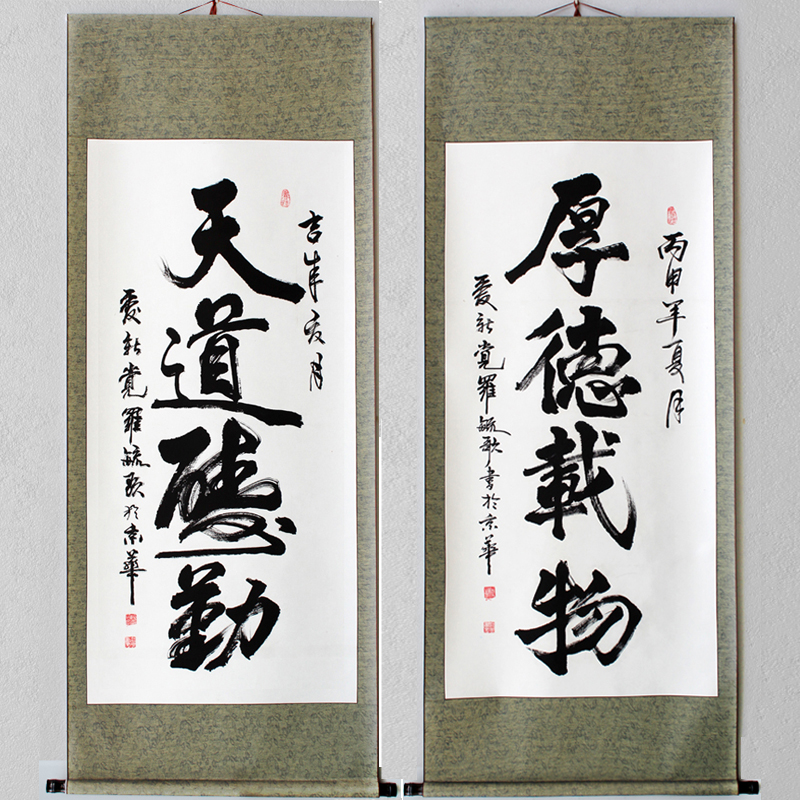 丙申年夏月
厚德載物
愛新覺羅毓歌書於京華
吉年夏月
天道酬勤
愛新覺羅毓歌於京華